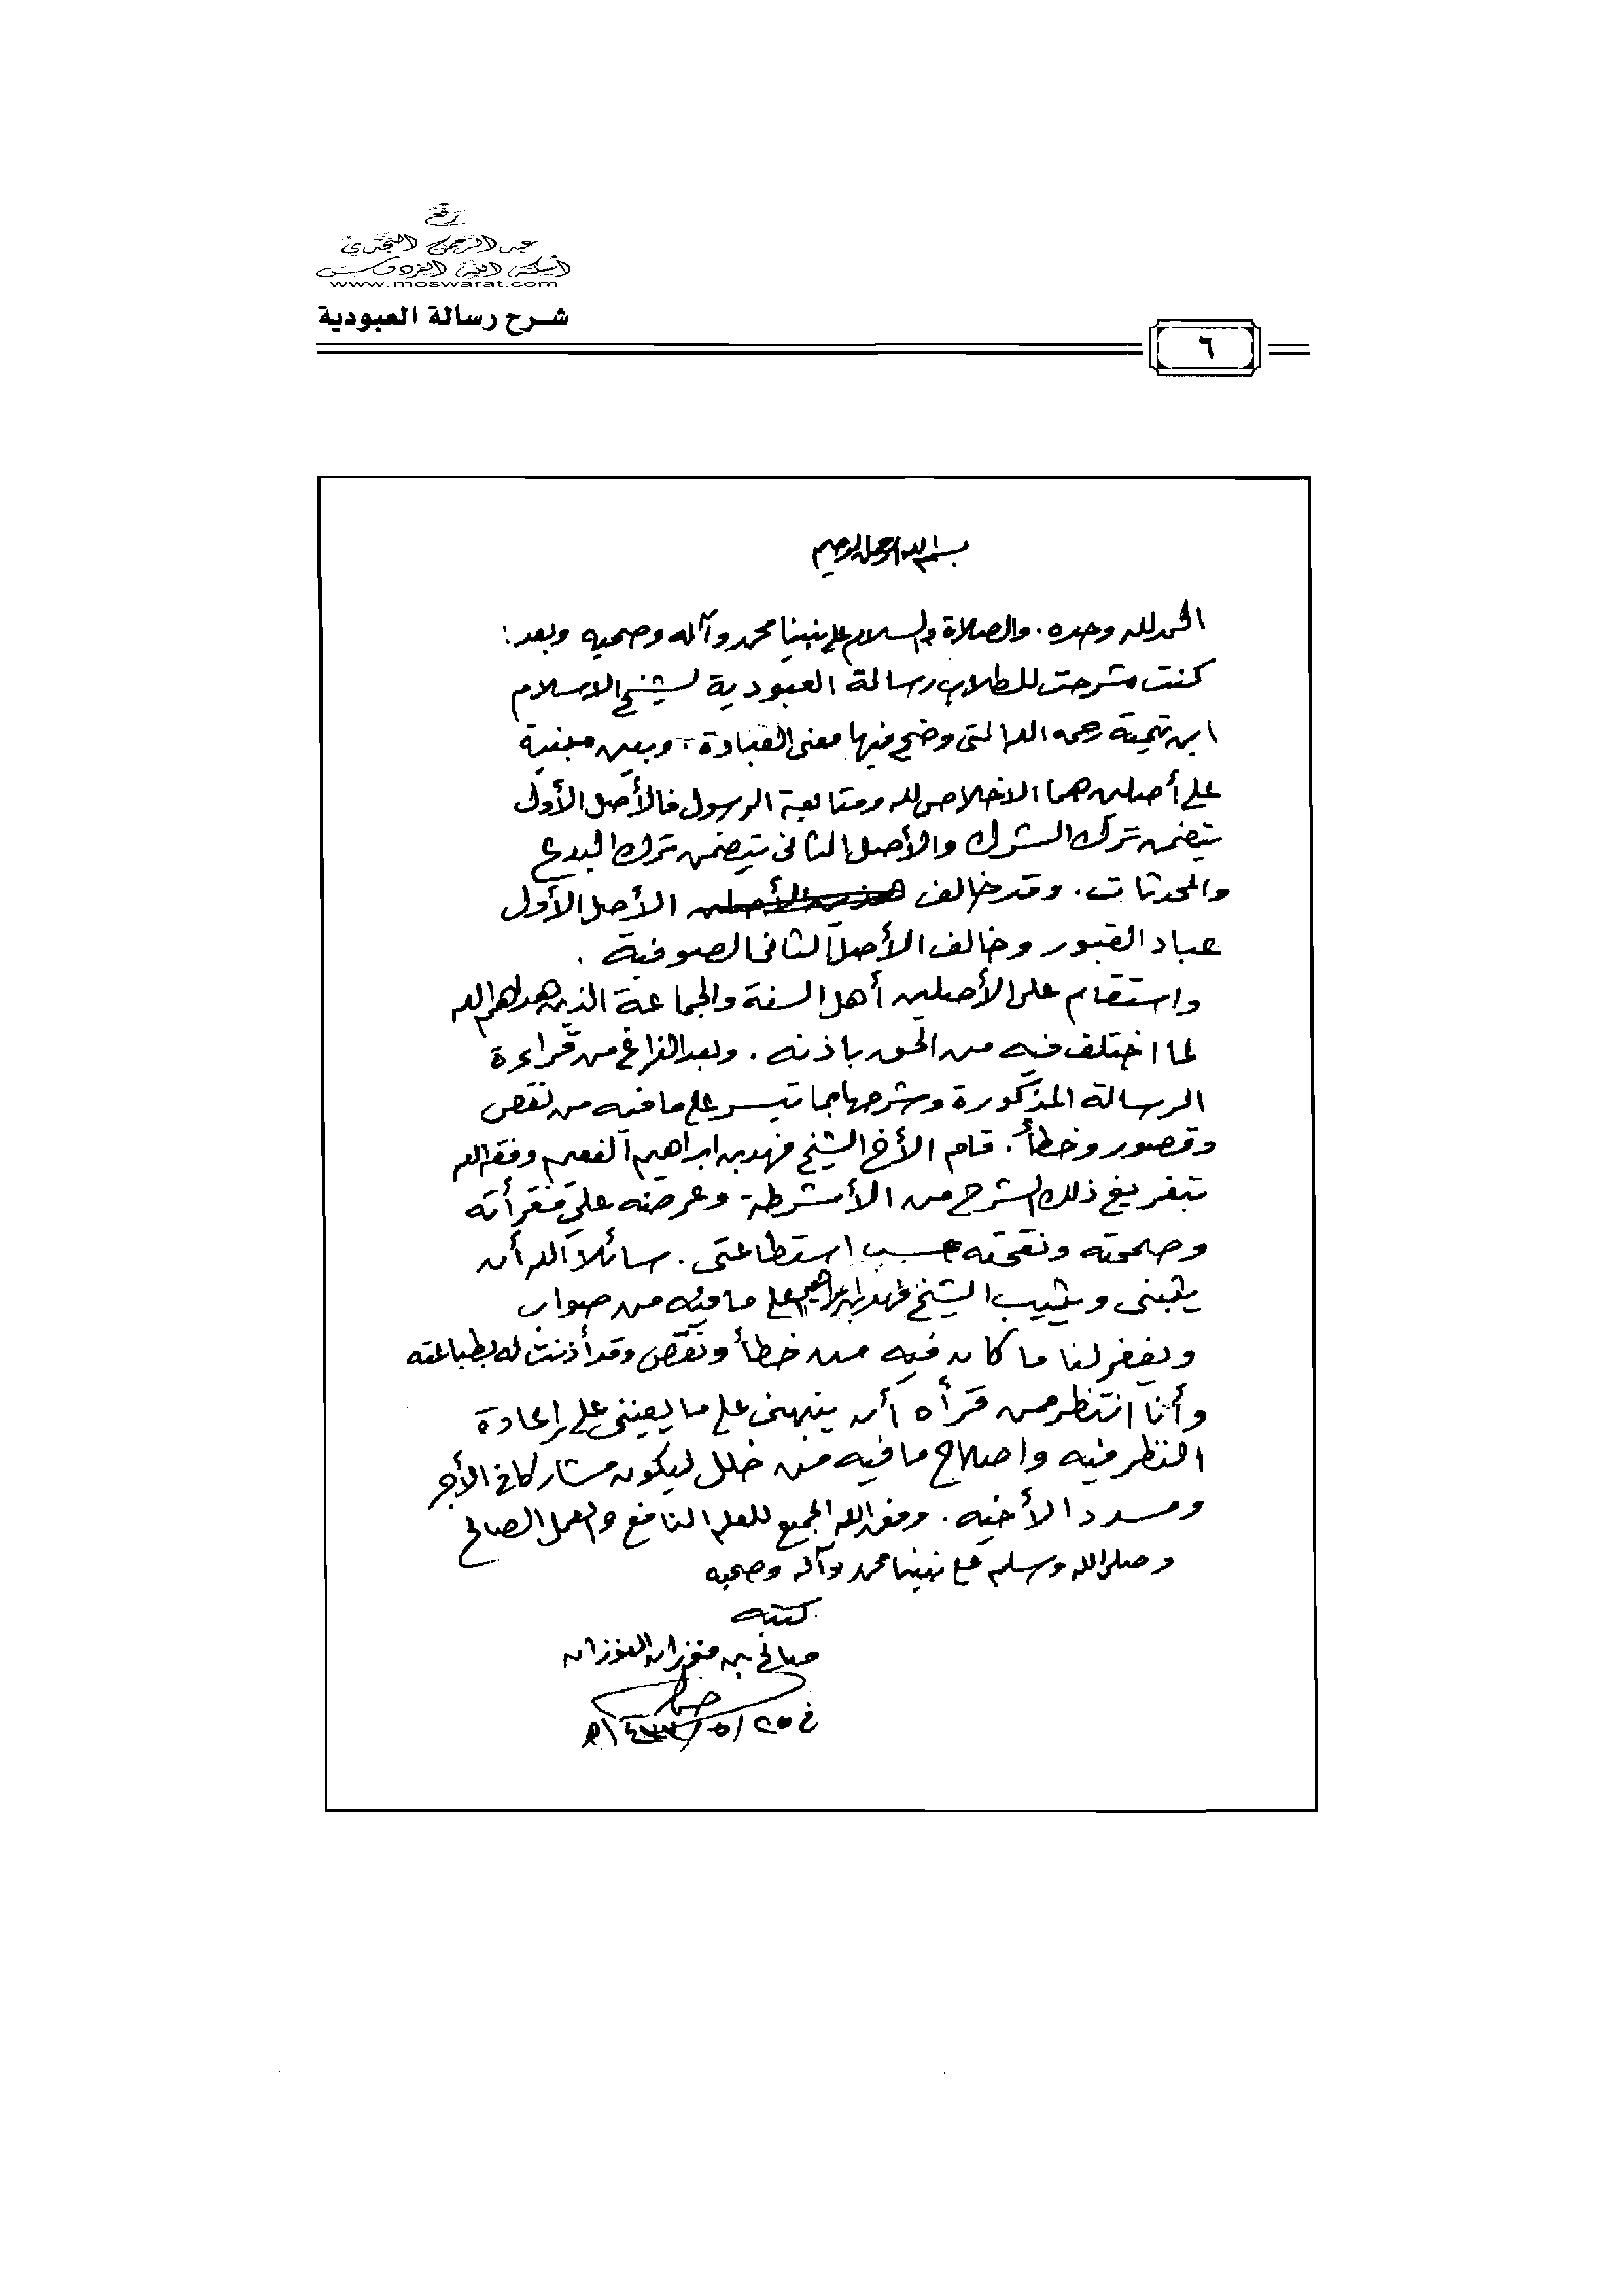 رفع
عبد الرحمن النجدي
أسكنه الله الفردوس
www.moswarat.com
شرح رسالة العبودية
٦
بسم الله الرحمن الرحيم
الحمد لله وحده. والصلاة والسلام على نبينا محمد وآله وصحبه وبعد:
كنت شرحت للطلاب رسالة العبودية لشيخ الاسلام
ابن تيمية رحمه الله التى وضح فيها معنى العبادة. وبين مبنية
على أصلين هما الاخلاص لله ومتابعة الرسول فالأصل الأول
يتضمن ترك الشرك والأصل الثانى يتضمن ترك البدع
والمحدثات. وقد خالف هذين الأصلين الأصل الأول
عباد القبور وخالف الأصل الثانى الصوفية.
واستقام على الأصلين أهل السنة والجماعة الذين هداهم الله
لما اختلف فيه من الحق باذنه. وبعد الفراغ من قراءة
الرسالة المذكورة وشرحها بما تيسر على ما فيه من نقص
وقصور وخطأ. قام الأخ الشيخ فهد بن ابراهيم الفعيم وفقه الله
بتفريغ ذلك الشرح من الأشرطة وعرضه علي فقرأته
وصححته ونقحته حسب استطاعتى. سائلا الله أن
يثيبنى ويثيب الشيخ فهد بن ابراهيم على ما فيه من صواب
ويغفر لنا ما كان فيه من خطأ ونقص وقد أذنت له بطباعته
وأنا انتظر من قرأه أن ينبهنى على ما يعيننى على إعادة
النظر فيه واصلاح ما فيه من خلل ليكون مشاركا فى الأجر
ومسددا لأخيه. وفق الله الجميع للعلم النافع والعمل الصالح
وصلى الله وسلم على نبينا محمد وآله وصحبه
كتبه
صالح بن فوزان الفوزان
فى ٢٥/٥/١٤٣٣هـ